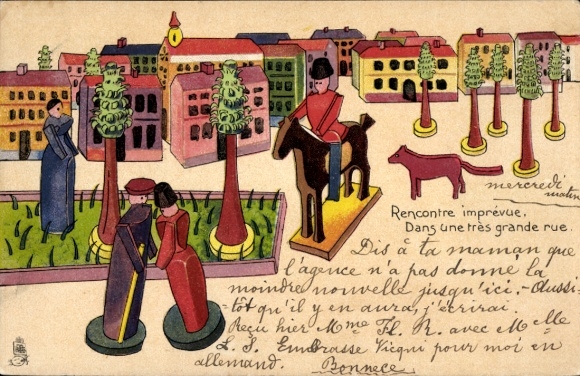 mercredi
matin
Rencontre imprévue.
Dans une très grande rue.
Dis à ta maman que
l'agence n'a pas donné la
moindre nouvelle jusqu'ici. - Aussi-
-tôt qu'il y en aura, j'écrirai.
Reçu hier Mme Fl. R. avec Melle
L. S. Embrasse Vicqui pour moi en
allemand. Bonnece